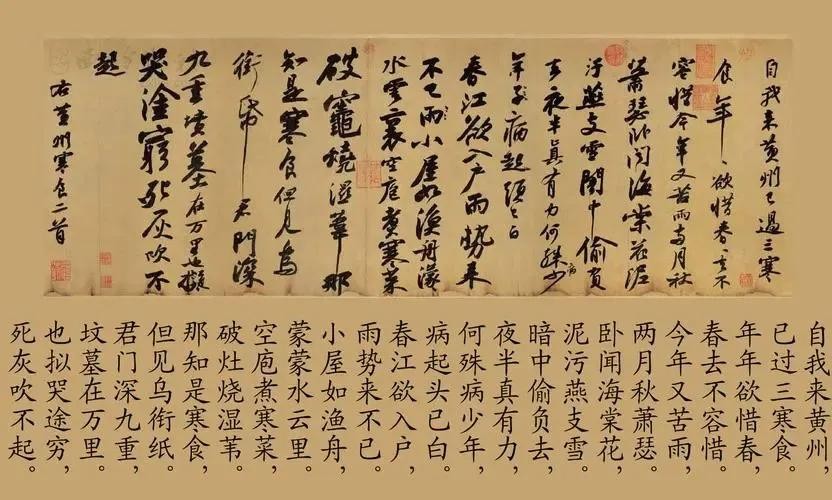 自我来黄州已過三寒
食年〻欲惜春〻去不
容惜今年又苦雨兩月秋
蕭瑟卧聞海棠花泥
汙燕支雪闇中偷負
去夜半真有力何殊病少
年子病起頭已白
春江欲入户雨勢来
不已雨小屋如漁舟濛〻
水雲裏空庖煮寒菜
破竈燒濕葦那
知是寒食但見烏
銜帋君門深
九重墳墓在万里也擬
哭塗窮死灰吹不
起
右黄州寒食二首
自我来黄州，
已过三寒食。
年年欲惜春，
春去不容惜。
今年又苦雨，
两月秋萧瑟
卧闻海棠花，
泥污燕支雪。
暗中偷负去，
夜半真有力
何殊病少年，
病起头已白。
春江欲入户，
雨势来不已
小屋如渔舟，
蒙蒙水云里。
空庖煮寒菜，
破灶烧湿苇。
那知是寒食，
但见乌衔纸
君门深九重，
坟墓在万里。
也拟哭途穷，
死灰吹不起。